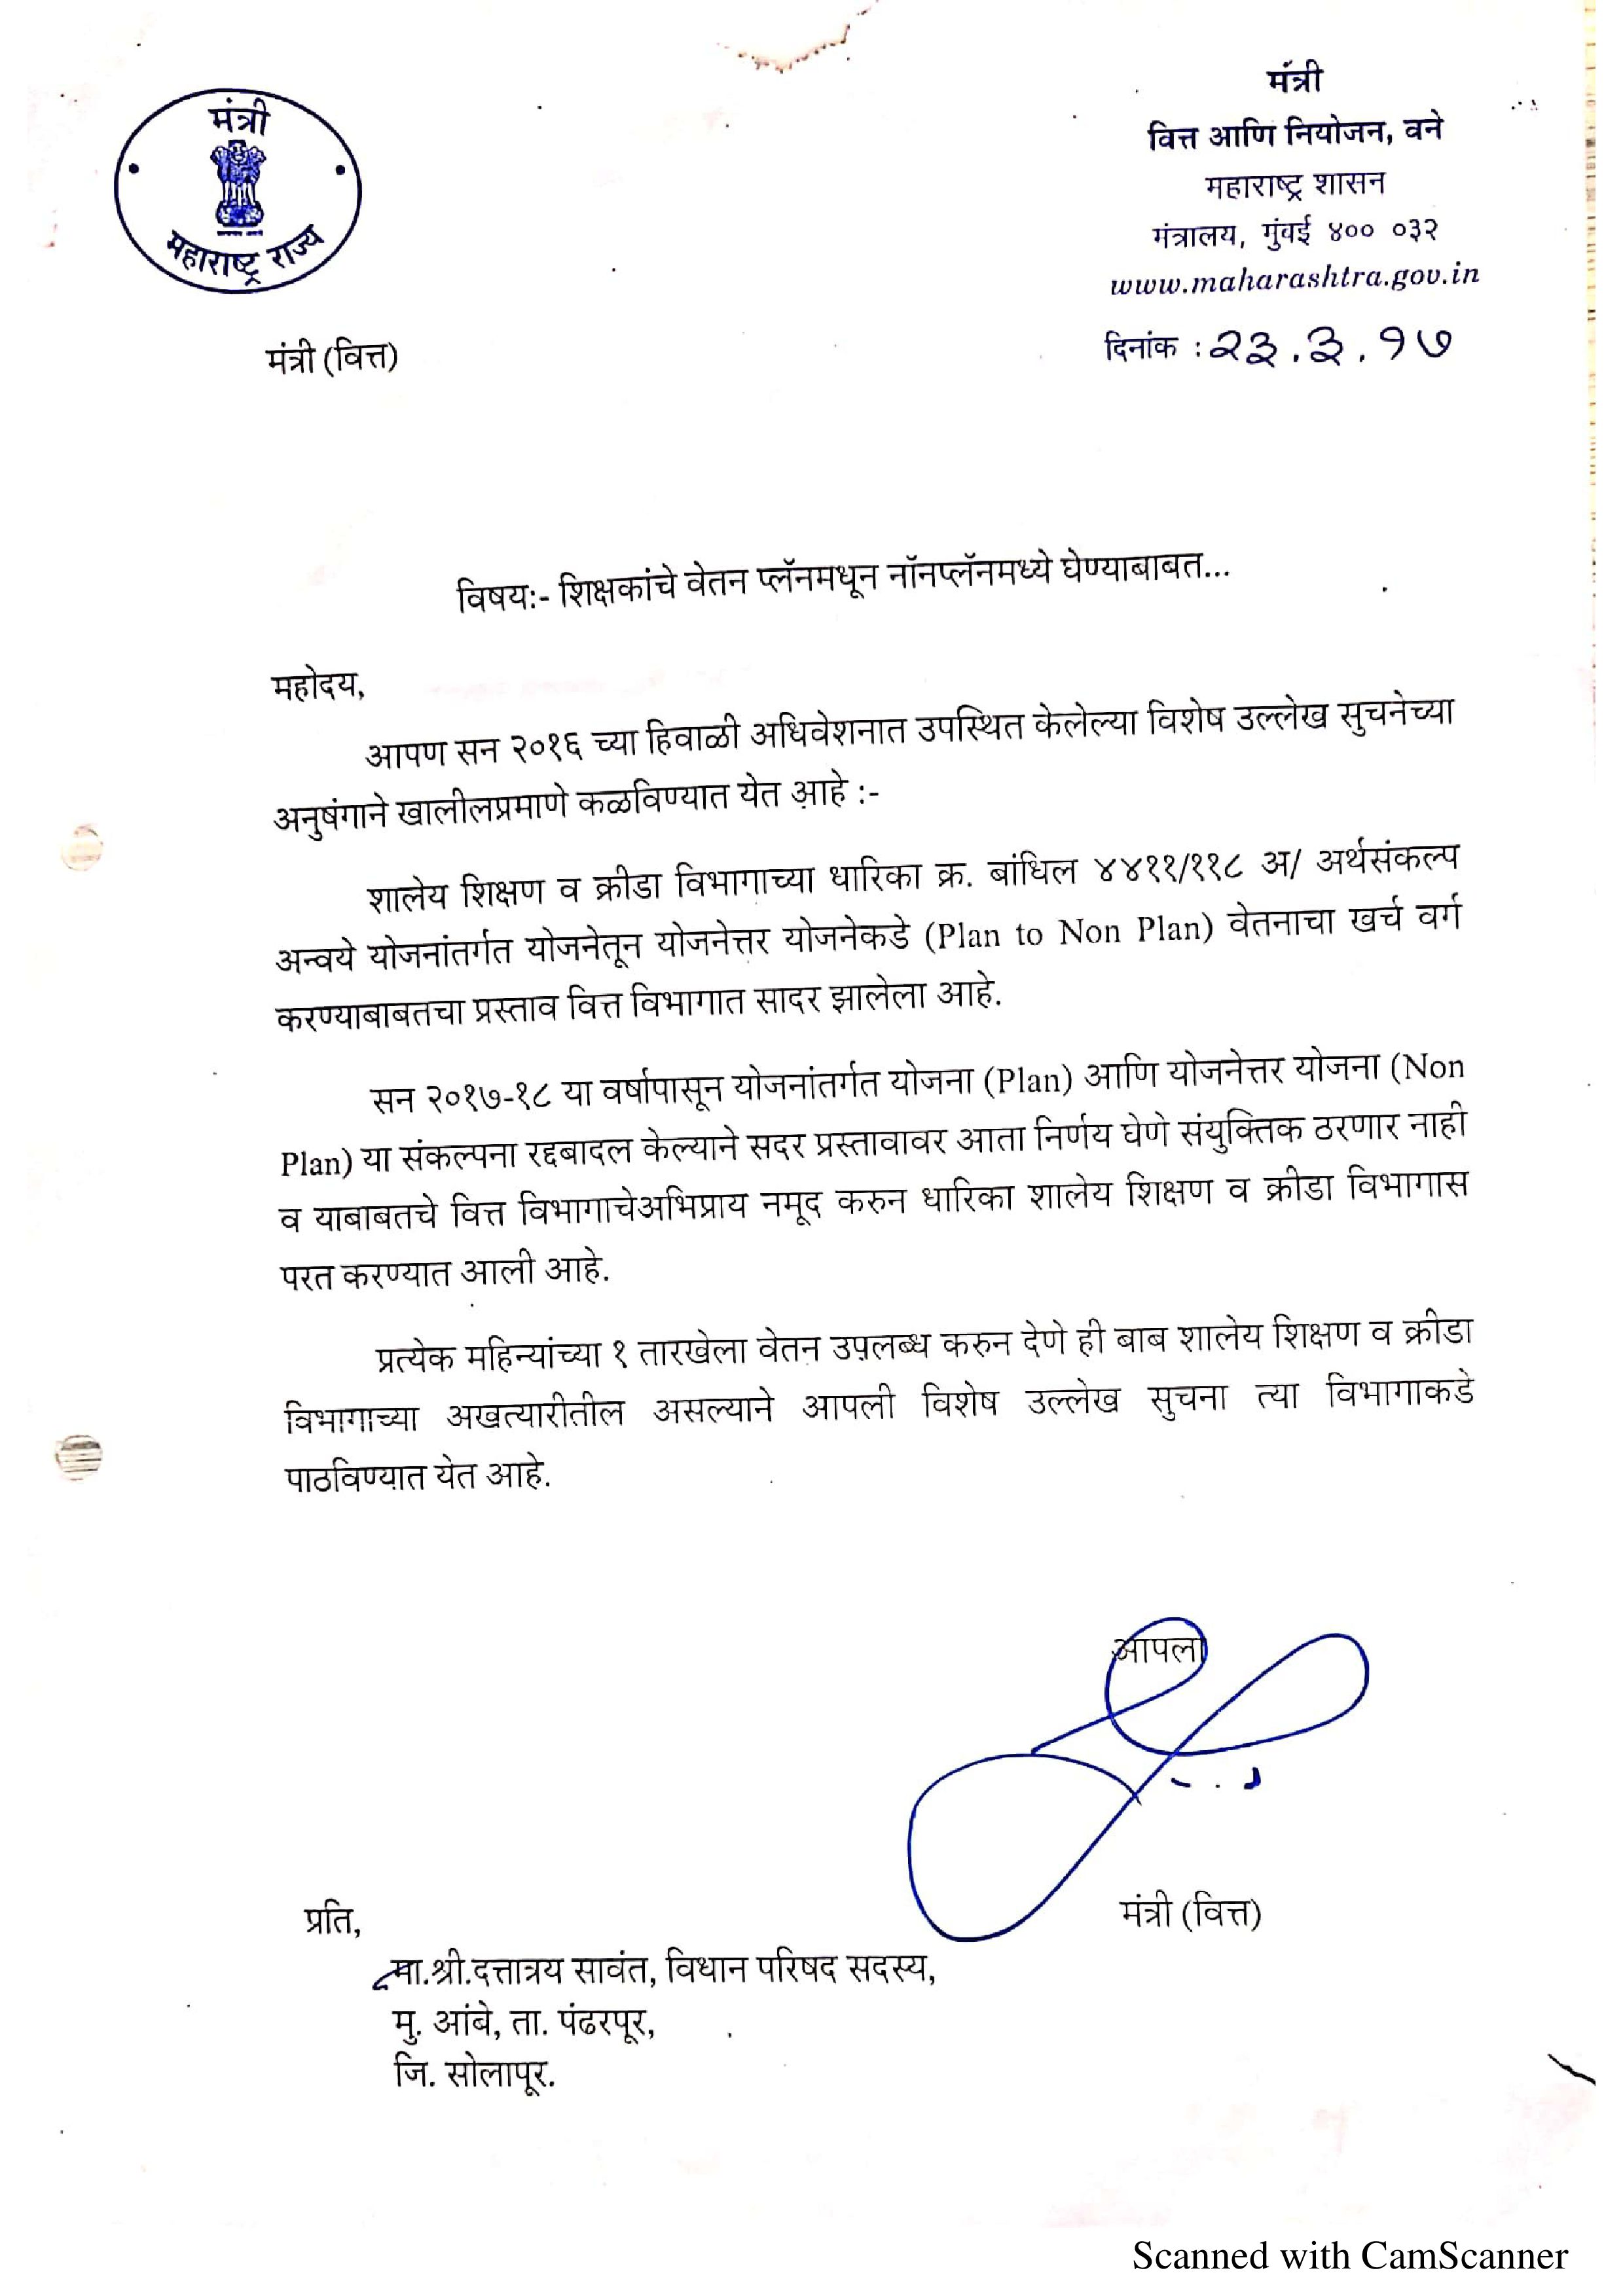 मंत्री
महाराष्ट्र राज्य
मंत्री
वित्त आणि नियोजन, वने
महाराष्ट्र शासन
मंत्रालय, मुंबई ४०० ०३२
www.maharashtra.gov.in
मंत्री (वित्त)
दिनांक : २३.३.१७
विषय:- शिक्षकांचे वेतन प्लॅनमधून नॉनप्लॅनमध्ये घेण्याबाबत...
महोदय,
आपण सन २०१६ च्या हिवाळी अधिवेशनात उपस्थित केलेल्या विशेष उल्लेख सुचनेच्या
अनुषंगाने खालीलप्रमाणे कळविण्यात येत आहे :-
शालेय शिक्षण व क्रीडा विभागाच्या धारिका क्र. बांधिल ४४११/११८ अ/ अर्थसंकल्प
अन्वये योजनांतर्गत योजनेतून योजनेत्तर योजनेकडे (Plan to Non Plan) वेतनाचा खर्च वर्ग
करण्याबाबतचा प्रस्ताव वित्त विभागात सादर झालेला आहे.
सन २०१७-१८ या वर्षापासून योजनांतर्गत योजना (Plan) आणि योजनेत्तर योजना (Non
Plan) या संकल्पना रद्दबादल केल्याने सदर प्रस्तावावर आता निर्णय घेणे संयुक्तिक ठरणार नाही
व याबाबतचे वित्त विभागाचेअभिप्राय नमूद करुन धारिका शालेय शिक्षण व क्रीडा विभागास
परत करण्यात आली आहे.
प्रत्येक महिन्यांच्या १ तारखेला वेतन उपलब्ध करुन देणे ही बाब शालेय शिक्षण व क्रीडा
विभागाच्या अखत्यारीतील असल्याने आपली विशेष उल्लेख सुचना त्या विभागाकडे
पाठविण्यात येत आहे.
आपला
मंत्री (वित्त)
प्रति,
मा.श्री.दत्तात्रय सावंत, विधान परिषद सदस्य,
मु. आंबे, ता. पंढरपूर,
जि. सोलापूर.
Scanned with CamScanner